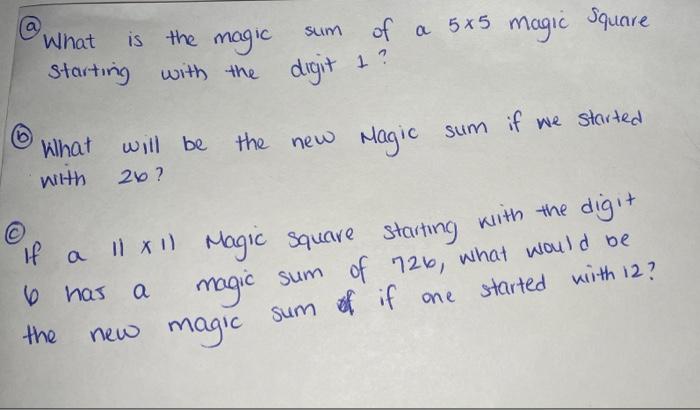 ⓐ What is the magic sum of a 5x5 magic Square
Starting with the digit 1?
ⓑ What will be the new Magic sum if we started
with 26?
ⓒ If a 11 x 11 Magic square starting with the digit
6 has a magic sum of 726, what would be
the new magic sum if one started with 12?